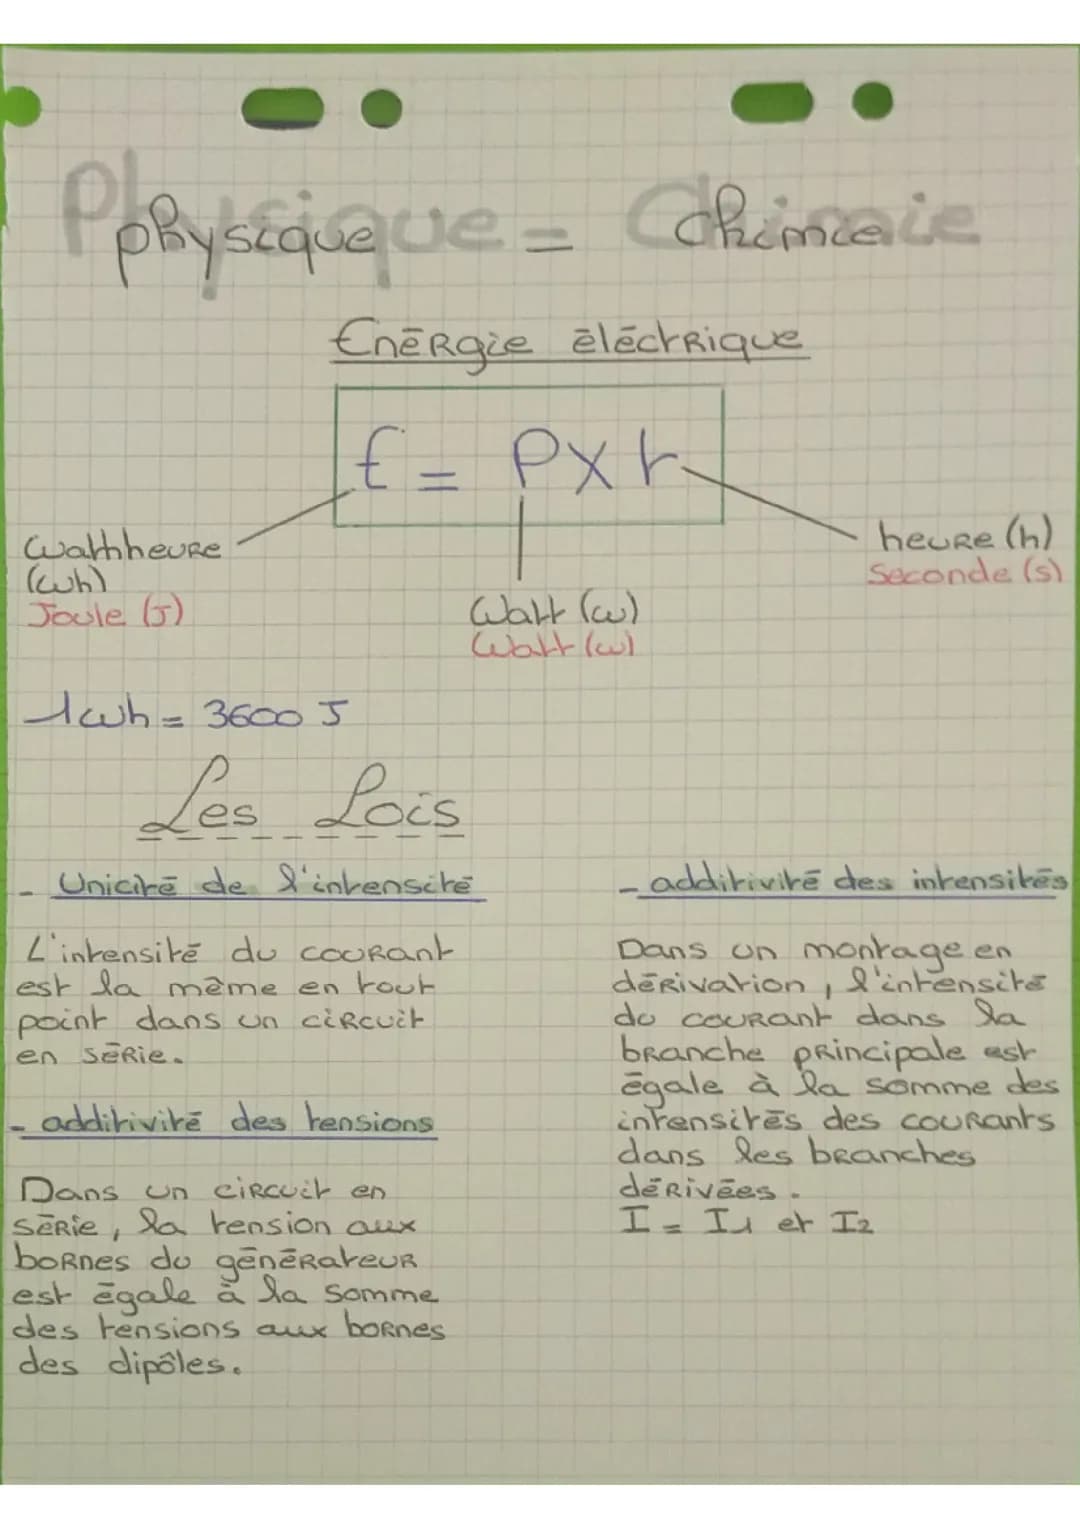 Physique = Chimie
Énergie éléctrique
E = P x t
Watthheure
(Wh)
Joule (J)
Watt (W)
Watt (W)
heure (h)
Seconde (s)
1 Wh = 3600 J
Les Lois
- Unicité de l'intensité
L'intensité du courant
est la même en tout
point dans un circuit
en série.
- additivité des tensions
Dans un circuit en
série, la tension aux
bornes du générateur
est égale à la somme
des tensions aux bornes
des dipôles.
- additivité des intensités
Dans un montage en
dérivation, l'intensité
du courant dans la
branche principale est
égale à la somme des
intensités des courants
dans les branches
dérivées.
I = I1 et I2